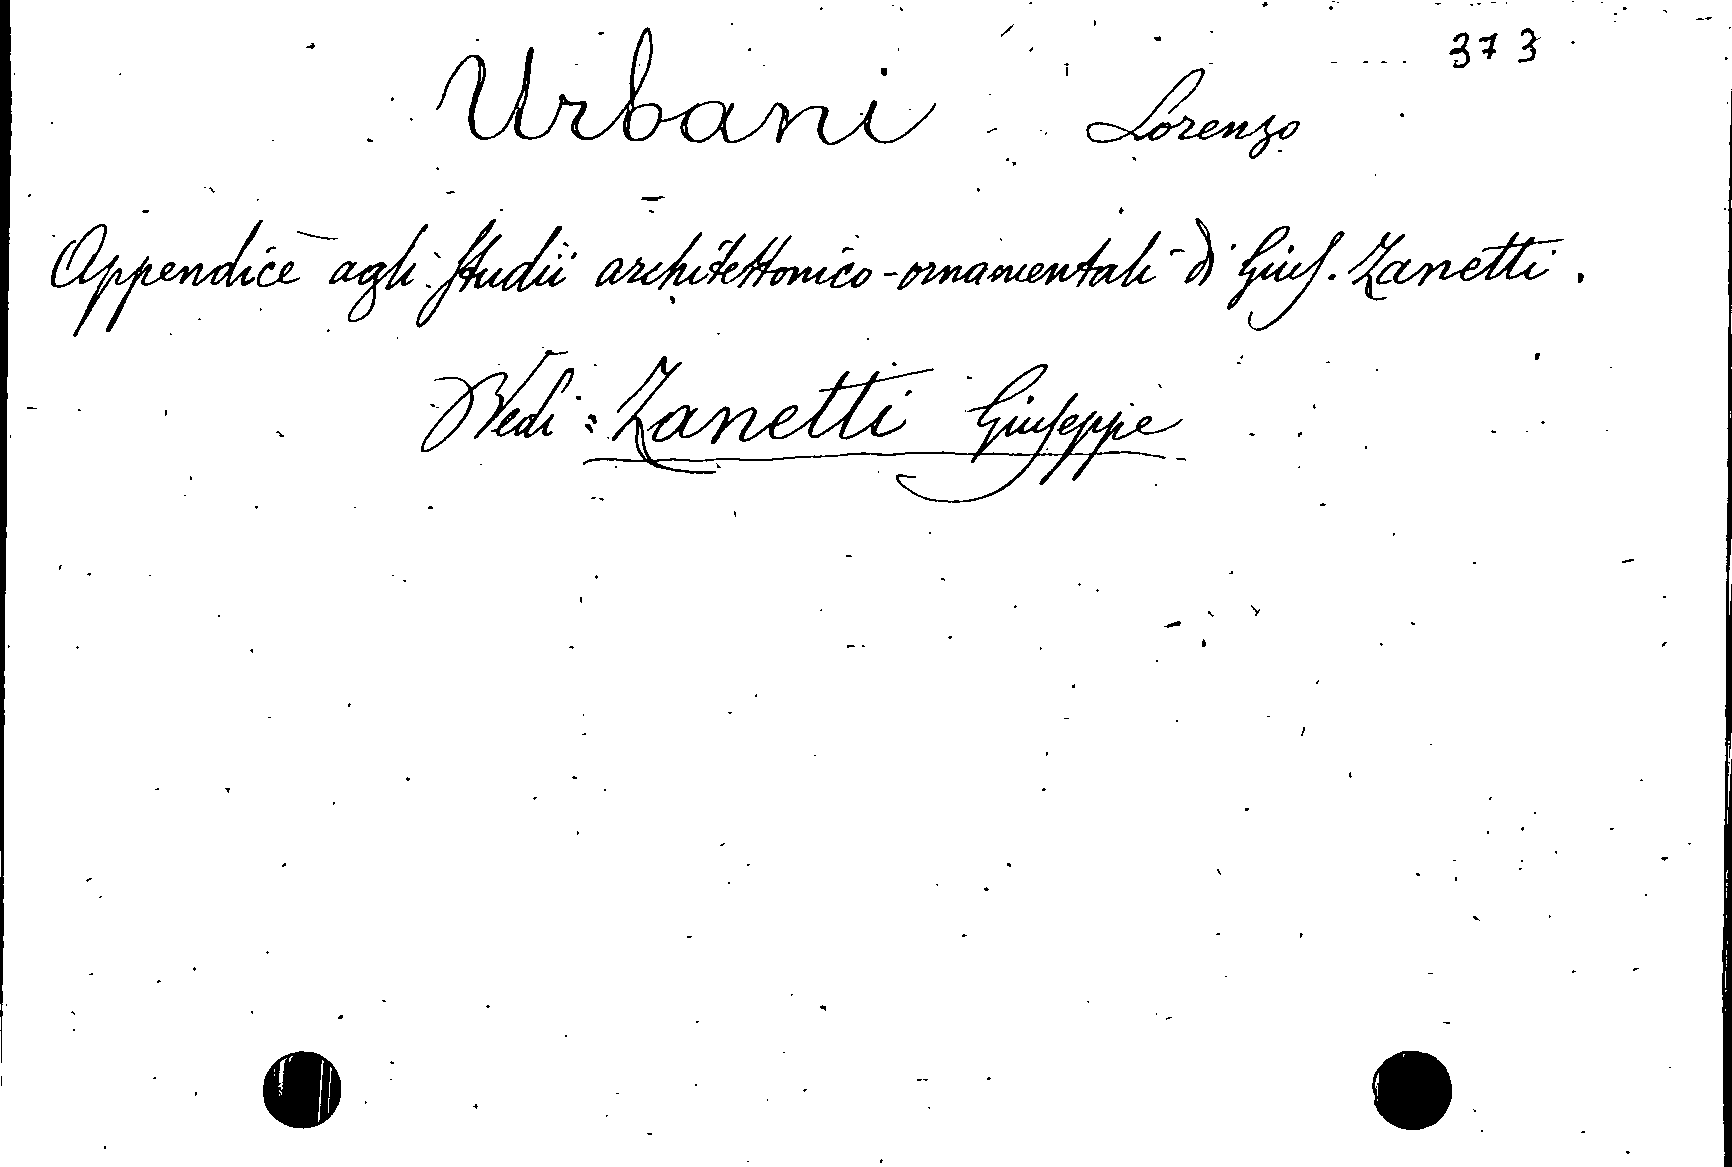 373
Urbani Lorenzo
Appendice agli Studii architettonico-ornamentali di Gius. Zanetti.
Vedi: Zanetti Giuseppe